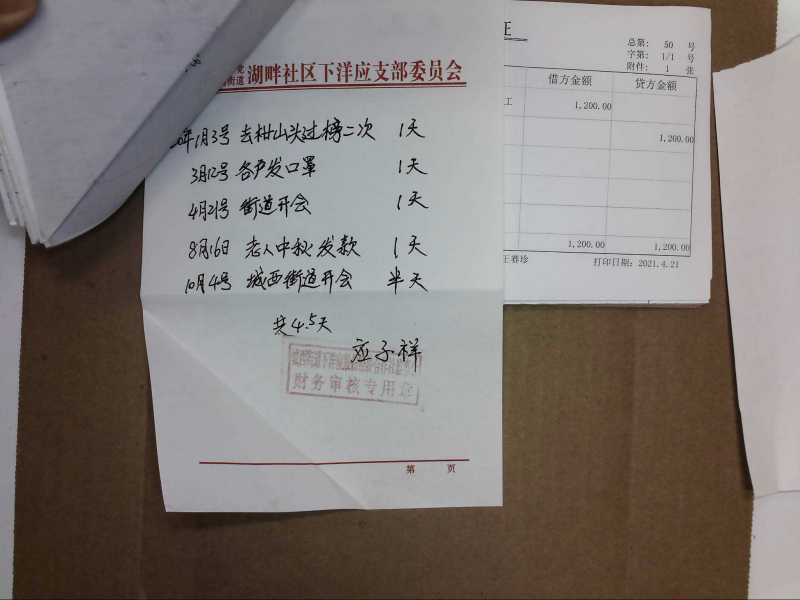 湖畔社区下洋应支部委员会
街道
年1月3号 去柑山头过榜二次 1天
3月12号 各户发口罩 1天
4月21号 街道开会 1天
8月16日 老人中秋发款 1天
10月4号 城西街道开会 半天
共4.5天
应子祥
财务审核专用章
第 页
证
总第: 50 号
字第: 1/1 号
附件: 1 张
借方金额 贷方金额
工 1,200.00
1,200.00
1,200.00 1,200.00
王春珍 打印日期: 2021.4.21